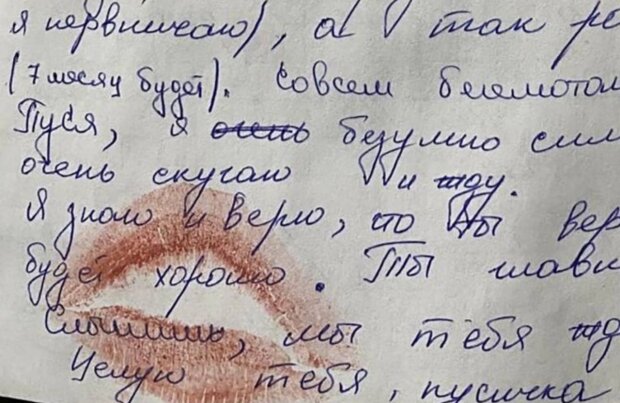 я нервничаю), а так ро
(7 месяц будет). Совсем бегемотом
Пуся, я очень безумно сил
очень скучаю и жду.
Я знаю и верю, что ты вер
будет хорошо. Ты главн
Слышишь, мы тебя жд
Целую тебя, пусичка